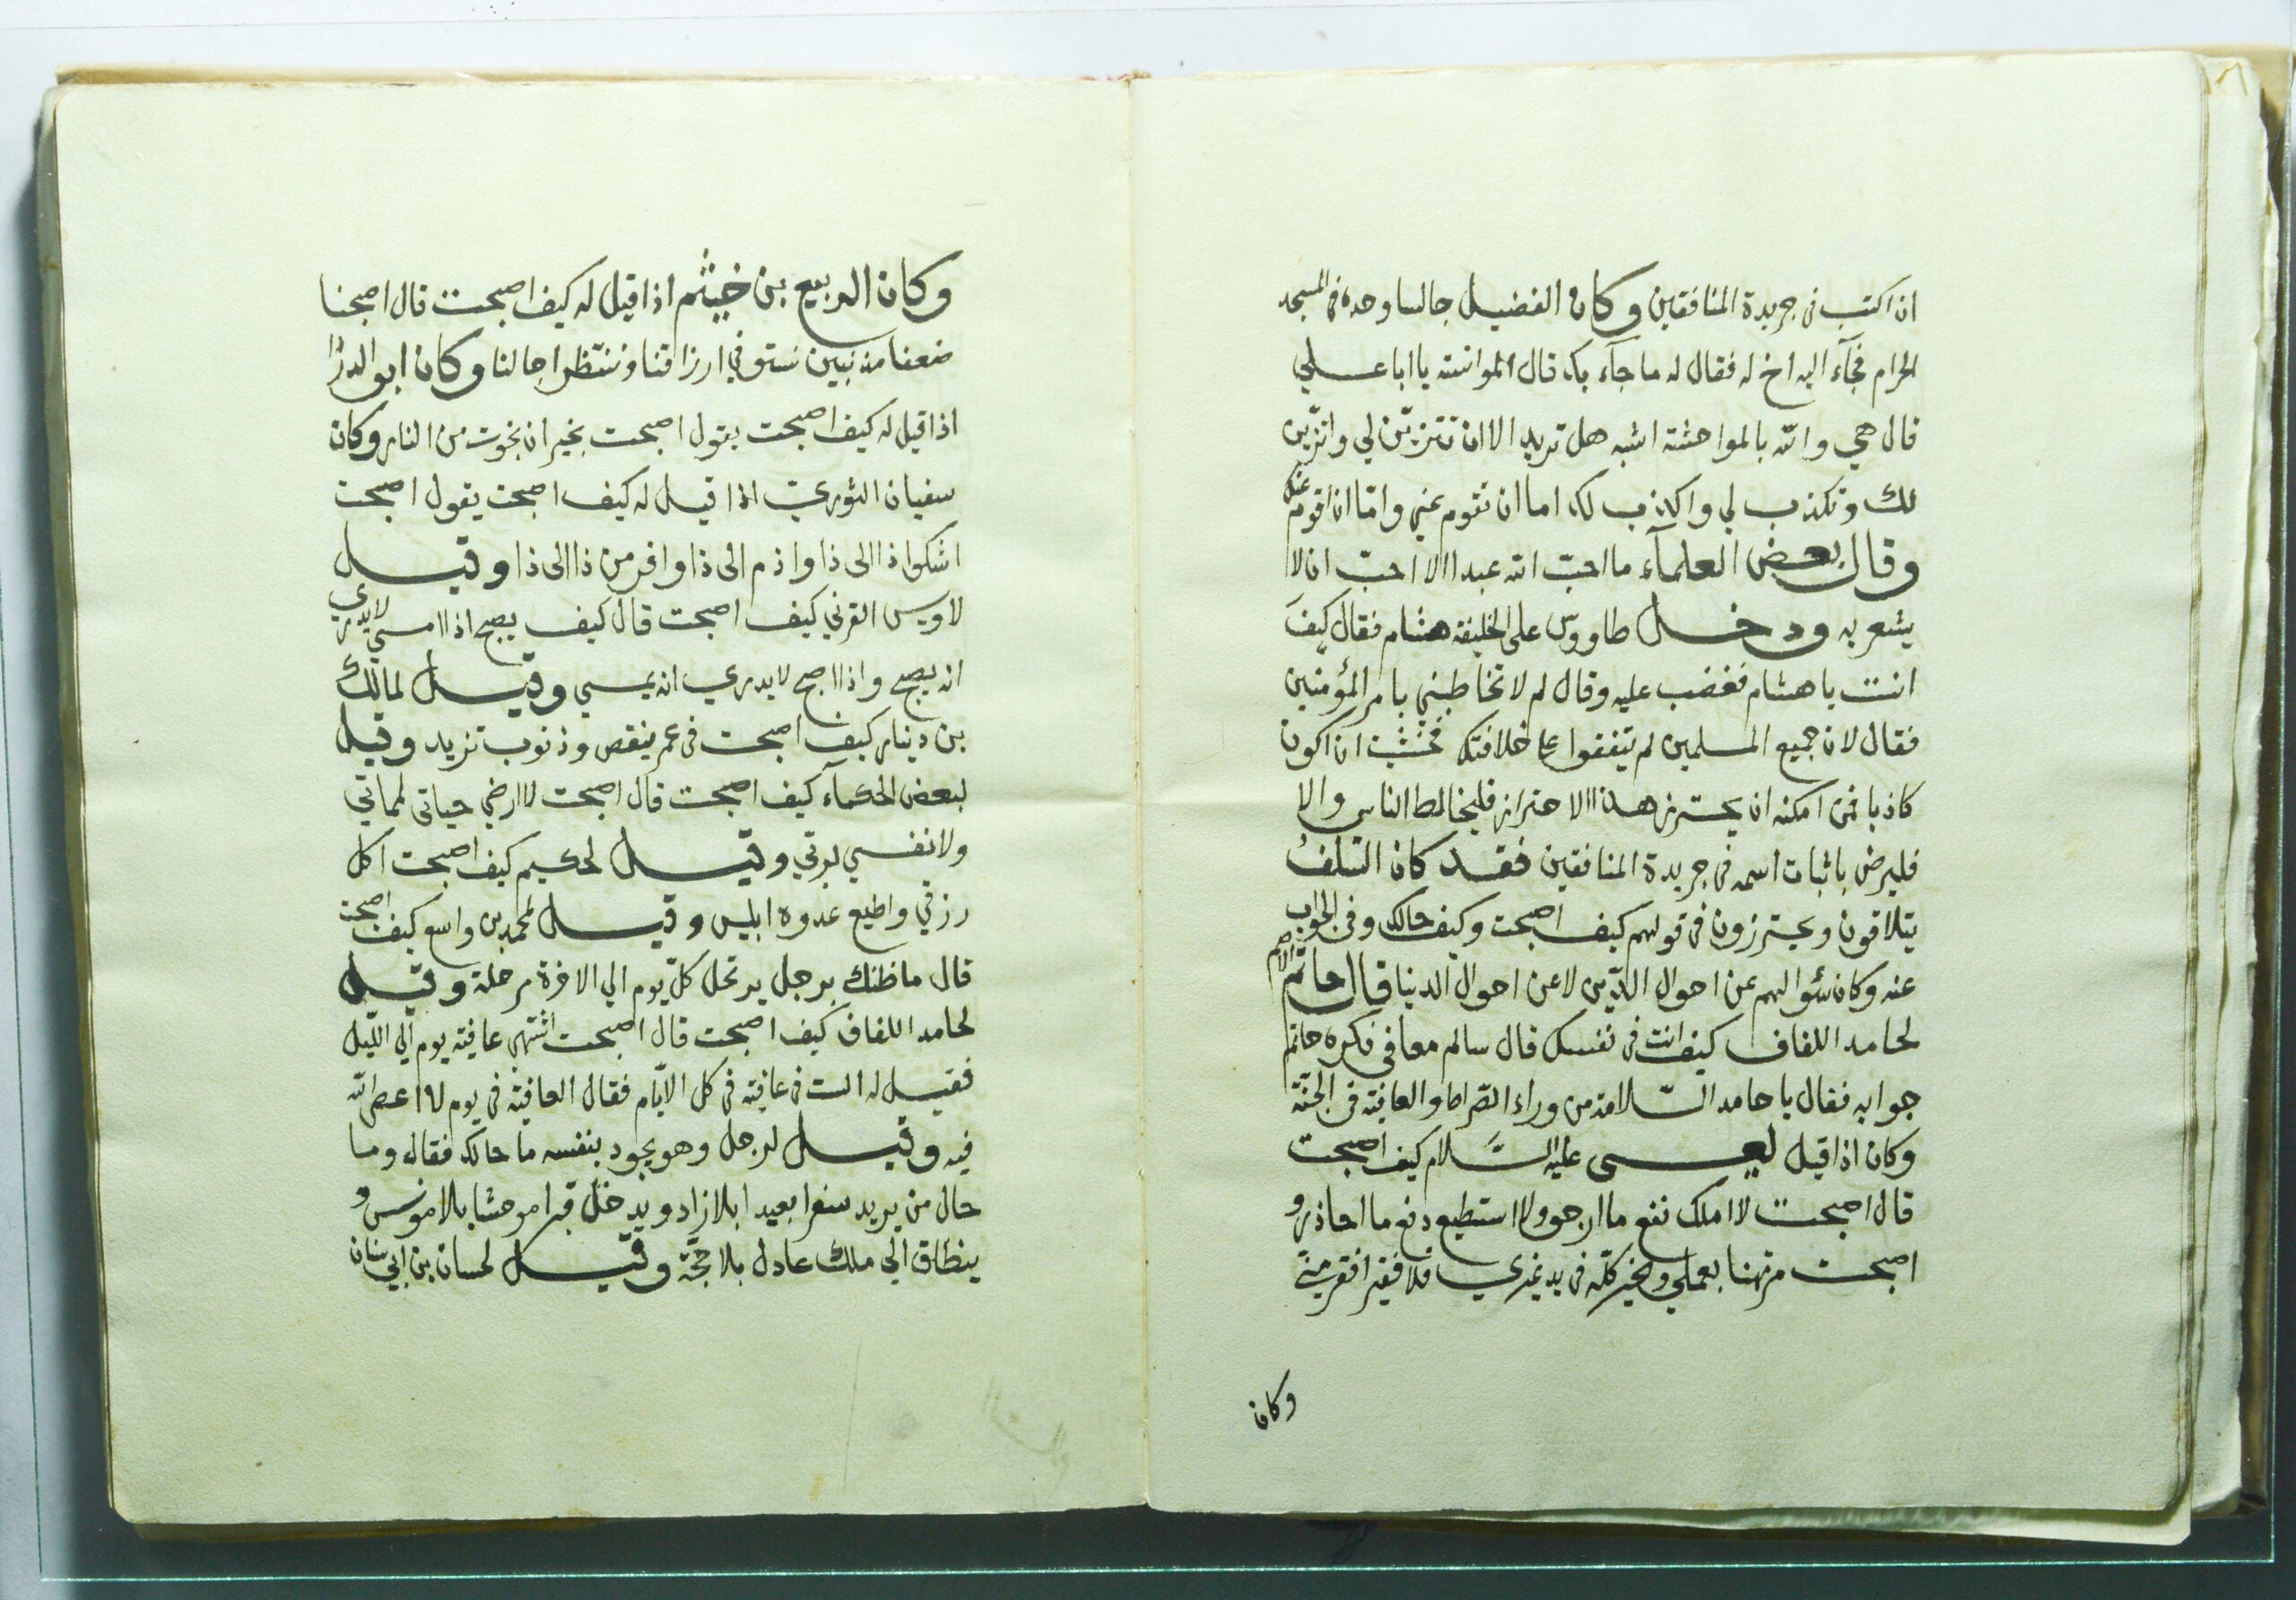 ان اكتب فى جريدة المنافقين وكان الفضيل جالسا وحده فى المسجد
الحرام فجآء اليه اخ له فقال له ما جآء بك قال الموانسة يا ابا علي
قال هي والله بالمواحشة اشبه هل تريد الا ان تتزيّن لي واتزّين
لك وتكذب لي واكذب لك اما ان تقوم عني وامّا ان اقوم عنك
وقال بعض العلمآء ما احبّ الله عبدا الا احبّ ان لا
يشعر به ودخل طاووس على الخليفة هشام فقال كيف
انت يا هشام فغضب عليه وقال لم لا تخاطبني بامر المؤمنين
فقال لان جميع المسلمين لم يتفقوا على خلافتك فخشيت ان اكون
كاذبا فمن امكنه ان يحترز هذا الاحتراز فليخالط الناس والا
فليرض باثبات اسمه فى جريدة المنافقين فقد كان السّلف
يتلاقون ويحترزون فى قولهم كيف اصبحت وكيف حالك وفى الجواب
عنه وكان سئوالهم عن احوال الدّين لا عن احوال الدنيا قال حاتم الاصم
لحامد اللفاف كيف انت فى نفسك قال سالم معافى فكره حاتم
جوابه فقال يا حامد السّلامة من وراء الصّراط والعافية فى الجنّة
وكان اذا قيل لعيسى عليه السَّلام كيف اصبحت
قال اصبحت لا املك نفع ما ارجو ولا استطيع دفع ما احاذر و
اصبحت مرتهنا بعملي والخير كلّه فى يد غيري فلا فقير افقر منّي
وكان
وكان الربيع بن خيثم اذا قيل له كيف اصبحت قال اصبحنا
ضعفا مذنبين نستوفي ارزاقنا وننتظر اجالنا وكان ابو الدردا
اذا قيل له كيف اصبحت يقول اصبحت بخير ان نجوت من النار وكان
سفيان الثوريّ اذا قيل له كيف اصبحت يقول اصبحت
اشكوا ذا الى ذا واذم الى ذا وافر من ذا الى ذا وقيل
لاويس القرني كيف اصبحت قال كيف يصبح اذا امسي لا يدري
انه يصبح واذا اصبح لا يدري انه يمسي وقيل لمالك
بن دينار كيف اصبحت فى عمر ينقص وذنوب تزيد وقيل
لبعض الحكمآء كيف اصبحت قال اصبحت لا ارضي حياتى لمماتي
ولا نفسي لربي وقيل لحكيم كيف اصبحت اكل
رزقي واطيع عدوه ابليس وقيل لمحمد بن واسع كيف اصبحت
قال ما ظنك برجل يرتحل كلّ يوم الي الاخرة مرحلة وقيل
لحامد اللفاف كيف اصبحت قال اصبحت اشتهي عافية يوم الي اللّيل
فقيل له الست فى عافية فى كل الايّام فقال العافية فى يوم لا اعصى الله
فيه وقيل لرجل وهو يجود بنفسه ما حالك فقال وما
حال من يريد سفرا بعيدا بلا زاد ويدخل قبرا موحشا بلا مونس و
ينطلق الي ملك عادل بلا حجّة وقيل لحسان بن ابي سنان